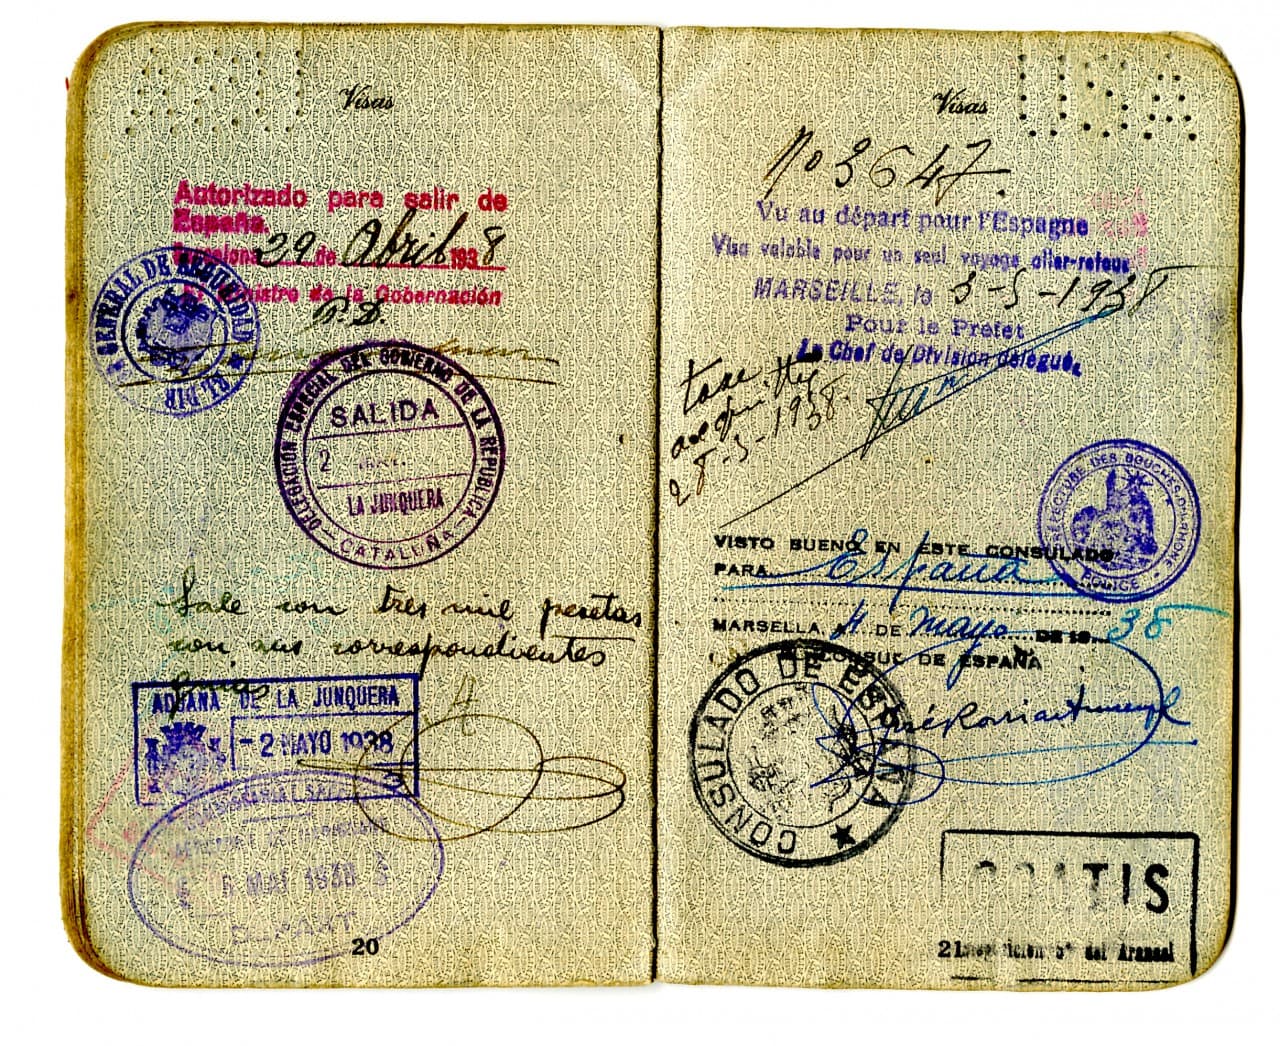 Visas
Autorizado para salir de
España.
Barcelona 29 de Abril 1938
Ministro de la Gobernación
P.D.
GENERAL DE SEGURIDAD
DELEGACIÓN ESPECIAL DEL GOBIERNO DE LA REPUBLICA
SALIDA
2
LA JUNQUERA
CATALUÑA
Sale con tres mil pesetas
con sus correspondientes
ADUANA DE LA JUNQUERA
-2 MAYO 1938
20
Visas
USA
No 3647.
Vu au départ pour l'Espagne
Visa valable pour un seul voyage aller-retour
MARSEILLE, le 3-5-1938
Pour le Préfet
Le Chef de Division délégué,
taxe
acquittée
1938
PREFECTURE DES BOUCHES-DU-RHONE
POLICE
VISTO BUENO EN ESTE CONSULADO
PARA España
MARSELLA 4 DE Mayo DE 19 38
CONSUL DE ESPAÑA
CONSULADO DE ESPAÑA
GRATIS
21
del Arancel